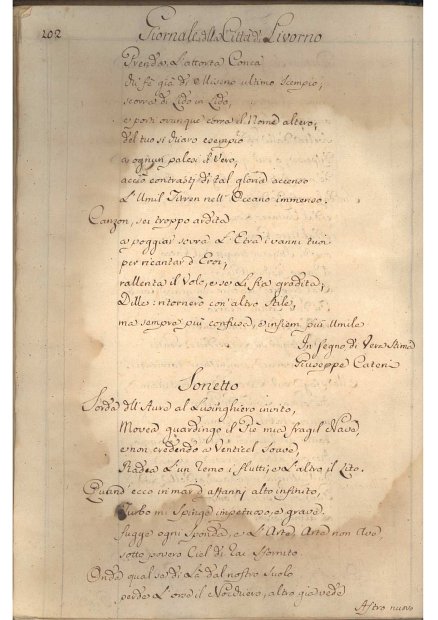 202 Giornale della Città di Livorno
Prenda l'attorta Conca
di fè già di Miseno ultimo scempio,
scorra di Lido in Lido,
e porti ovunque corra il Nome altero,
del tuo sì chiaro esempio
a ognun palesi il Vero,
acciò contrasti di tal gloria acceso
L'Umil Tirren nell'Oceano immenso.
Canzon, sei troppo ardita
a poggiar sovra l'Etra i vanni tuoi
per ricantar d'Eroi,
rallenta il Volo, e se Li fia gradita,
Dille: ritornerò con altro Stile,
ma sempre più confusa, e insiem più Umile
In segno di Vera Stima
Giuseppe Catoni
Sonetto
Sorda dell'Aure al Lusinghiero invito,
Movea guardingo il Piè mia fragil Nave,
e non credendo a Venticel soave,
Radea l'un Remo i flutti, e l'altro il Lito.
Quand'ecco in mar d'affanni alto infinito,
Turbo mi spinge impetuoso, e grave.
fugge ogni Sponda, e l'Arte, Arte non Ave,
sotto povero Ciel di rai sfornito
Onda qual se di Là dal nostro suolo
perde l'orse il Nocchiero, altro già vede
Astro nuovo